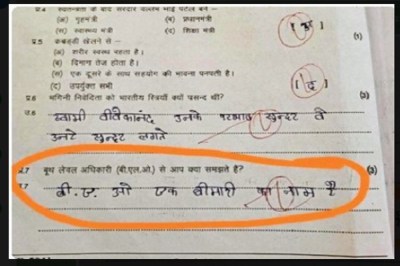 प्र.4 स्वतन्त्रता के बाद सरदार वल्लभ भाई पटेल बने –
(अ) गृहमंत्री (ब) प्रधानमंत्री
(स) स्वास्थ्य मंत्री (द) शिक्षा मंत्री
(1)
प्र.5 कबड्डी खेलने से –
(अ) शरीर स्वस्थ रहता है।
(ब) दिमाग तेज होता है।
(स) एक दूसरे के साथ सहयोग की भावना पनपती है।
(द) उपर्युक्त सभी
[ द ]
प्र.6 भगिनी निवेदिता को भारतीय स्त्रियाँ क्यों पसन्द थीं?
(2)
उ.6 स्वामी विवेकानन्द उनके सुन्दर वे
उनटे सुन्दर लगते
प्र.7 बूथ लेवल अधिकारी (बी.एल.ओ.) से आप क्या समझते हैं?
(3)
बी. एल. ओ एक बीमारी का नाम है